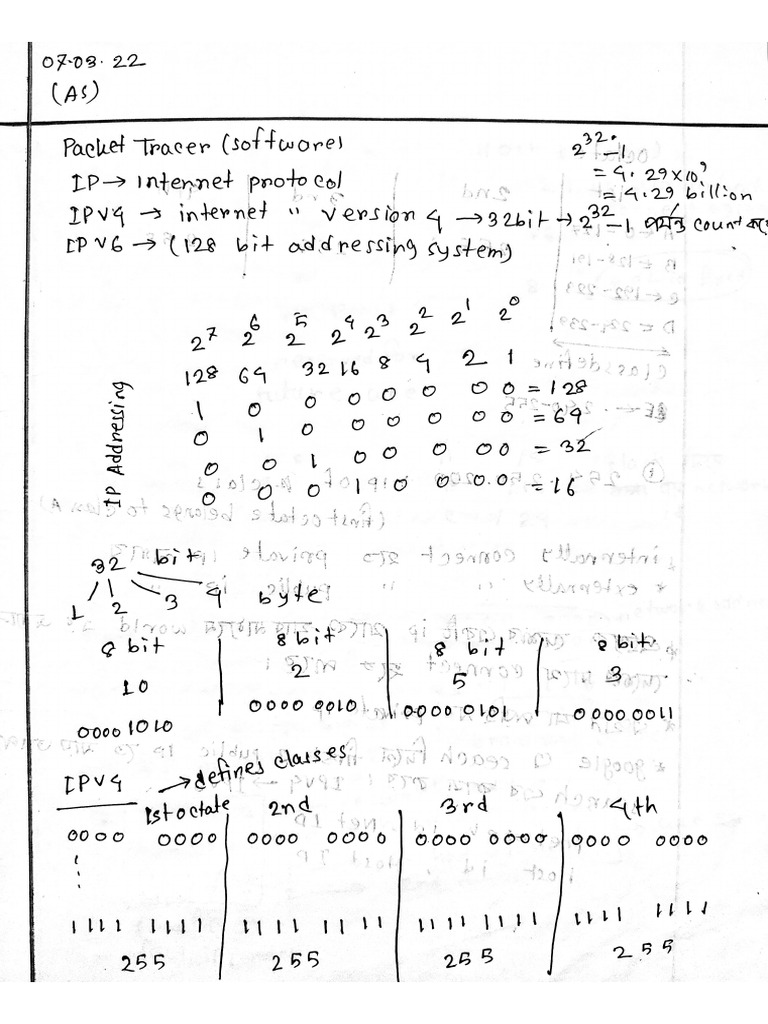 07.03.22
(AS)
Packet Tracer (software)
2^32-1
= 4.29×10^9
= 4.29 billion
IP → Internet protocol
IPV4 → internet " version 4 → 32bit → 2^32-1 পর্যন্ত count
IPV6 → (128 bit addressing system)
IP Addressing
2^7 2^6 2^5 2^4 2^3 2^2 2^1 2^0
128 64 32 16 8 4 2 1
1 0 0 0 0 0 0 0 = 128
0 1 0 0 0 0 0 0 = 64
0 0 1 0 0 0 0 0 = 32
0 0 0 1 0 0 0 0 = 16
32 bit
1 2 3 4 byte
8 bit 8 bit 8 bit 8 bit
10 2 5 3
0000 1010 0000 0010 0000 0101 0000 0011
IPV4 → defines classes
1st octate 2nd 3rd 4th
0000 0000 0000 0000 0000 0000 0000 0000
1111 1111 1111 1111 1111 1111 1111 1111
255 255 255 255